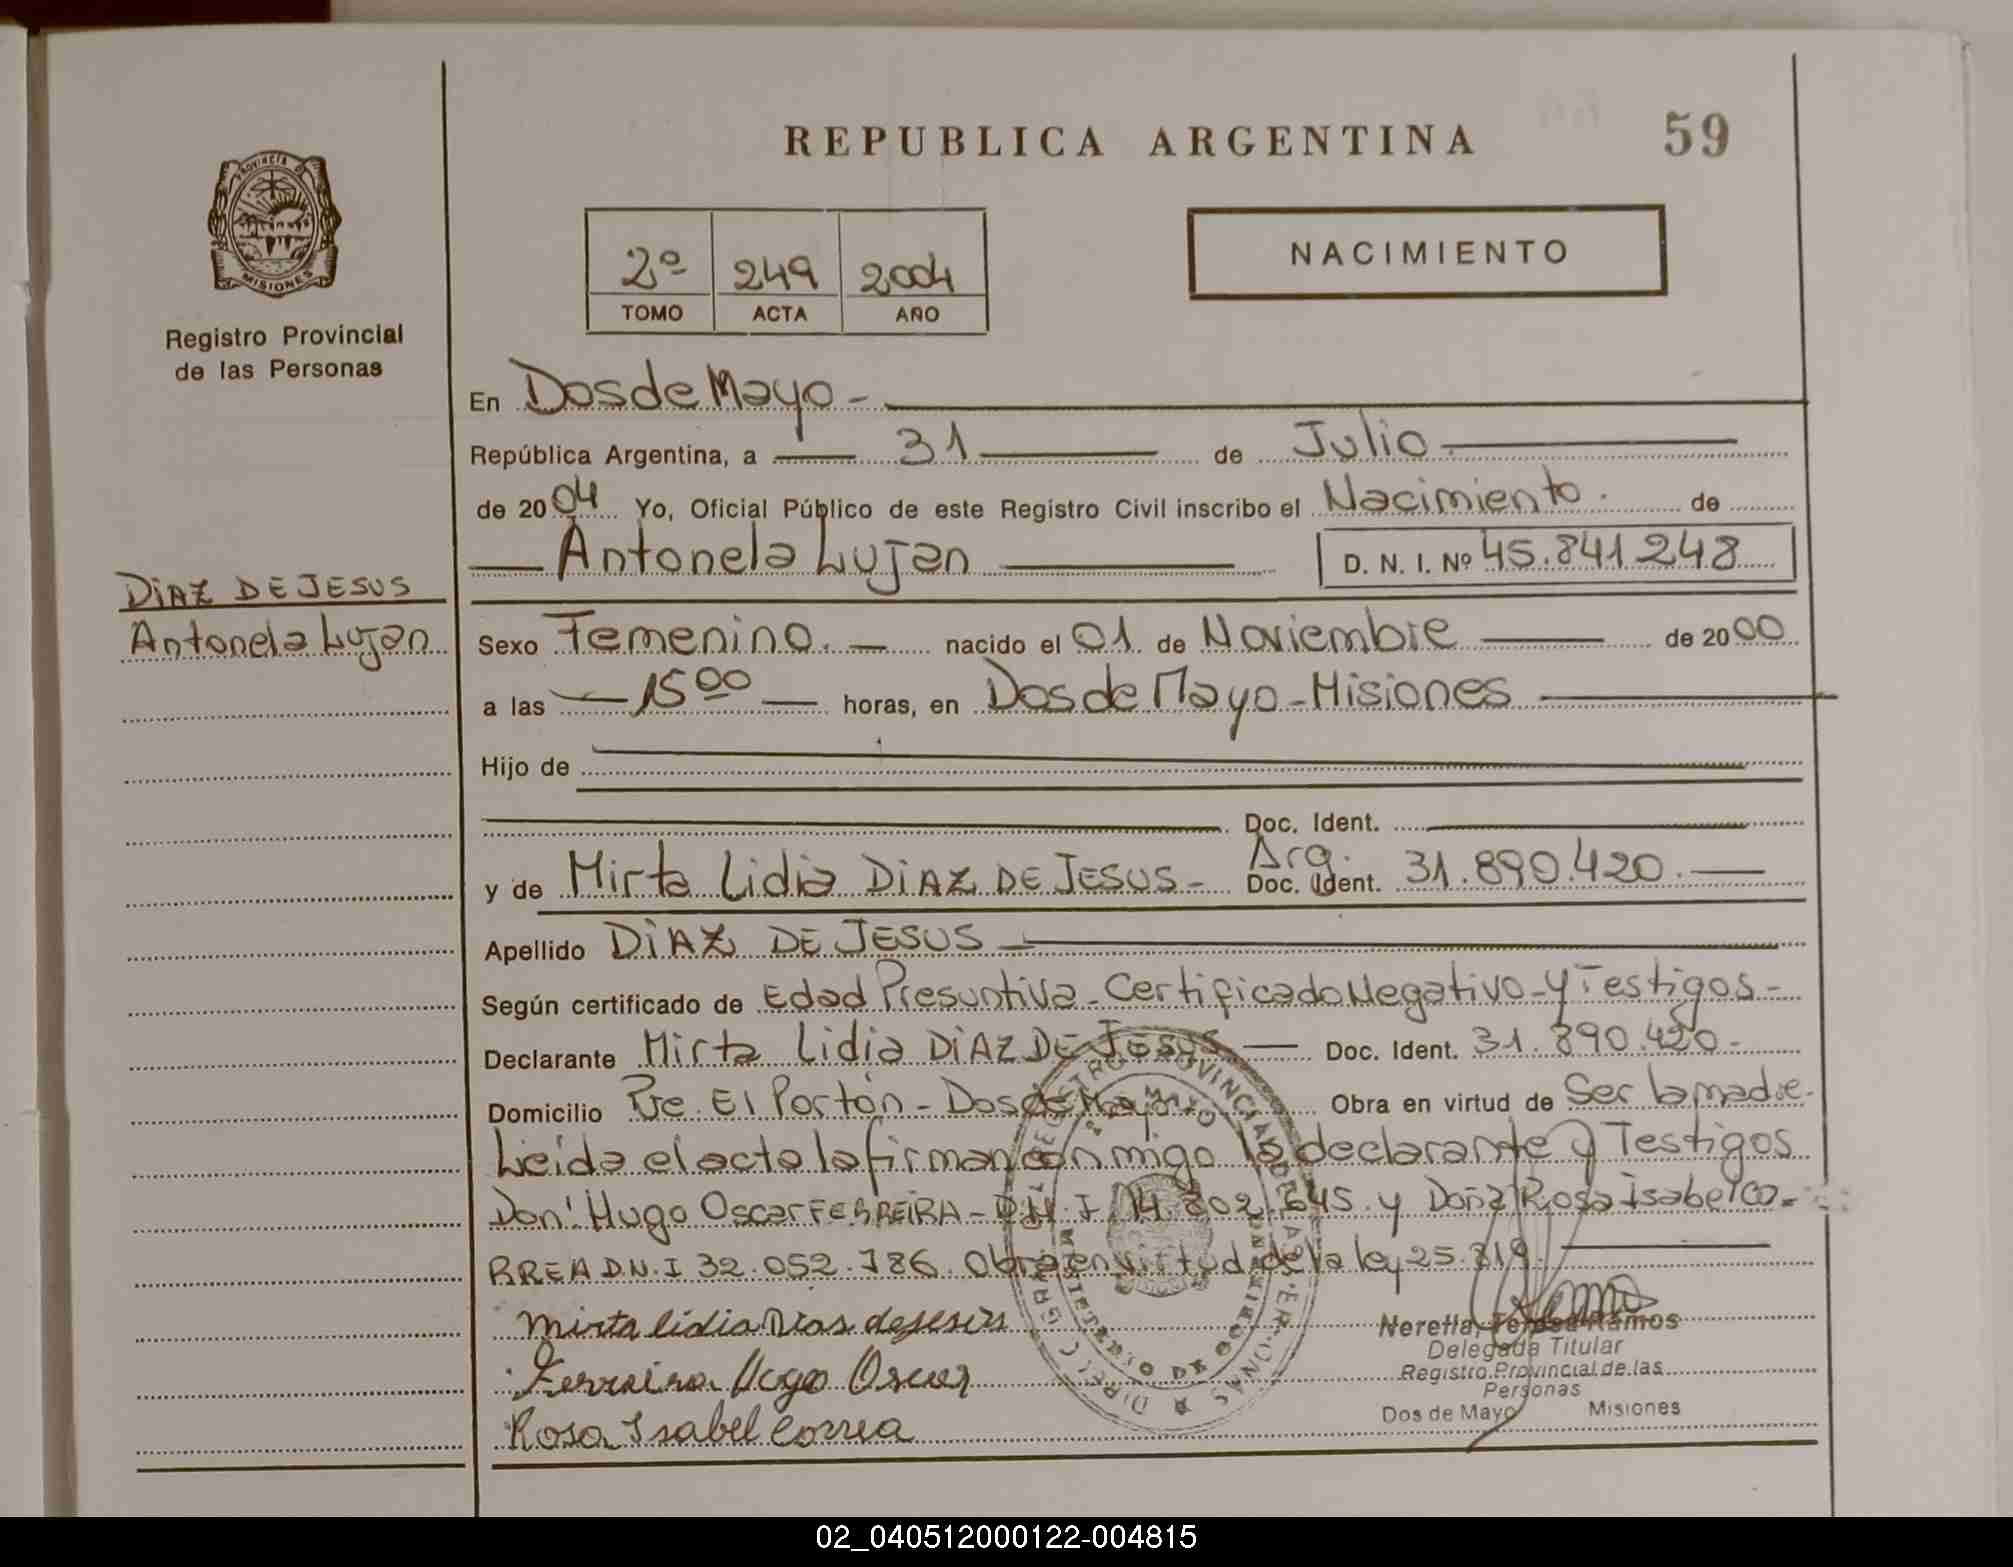 REPUBLICA ARGENTINA
59
PROVINCIA DE
MISIONES
Registro Provincial
de las Personas
2º 249 2004
TOMO ACTA AÑO
NACIMIENTO
En Dos de Mayo -
República Argentina, a 31 de Julio
de 2004 Yo, Oficial Público de este Registro Civil inscribo el Nacimiento. de
Antonela Lujan D. N. I. Nº 45.841248
DIAZ DE JESUS
Antonela Lujan
Sexo Femenino. nacido el 01 de Noviembre de 2000
a las 15 00 horas, en Dos de Mayo - Misiones
Hijo de
Doc. Ident.
y de Mirta Lidia DIAZ DE JESUS - Arg. Doc. Ident. 31.890.420.
Apellido DIAZ DE JESUS
Según certificado de Edad Presuntiva - Certificado Negativo - y Testigos -
Declarante Mirta Lidia DIAZ DE JESUS Doc. Ident. 31.890.420 -
Domicilio Pje. El Portón - Dos de Mayo Obra en virtud de Ser la madre.
Leída el acta la firman conmigo la declarante y Testigos
Don: Hugo Oscar FERREIRA - D.N.I 14.802.645. y Doña Rosa Isabel CO=
RREA D.N.I 32.052.786. Obra en virtud de la ley 25.819.
Mirta lidia Dias de jesus
Ferreira Ugo Oscar
Rosa Isabel Correa
Nerella, Teresa Ramos
Delegada Titular
Registro Provincial de las
Personas
Dos de Mayo Misiones
02_040512000122-004815